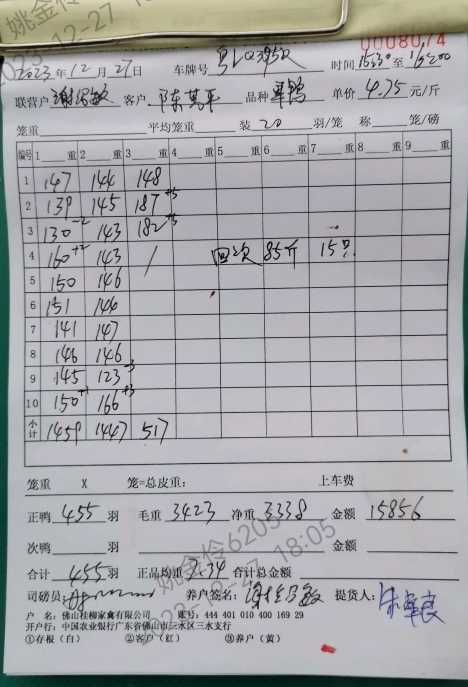 0008074
2023年12月27日 车牌号 粤L03950 时间 15:30至16:00
联营户 谢 敏 客户 陈 平 品种 鸭 单价 4.75元/斤
笼重 平均笼重 装 20 羽/笼 称 笼/磅
编号 1 重 2 重 3 重 4 重 5 重 6 重 7 重 8 重 9 重
1 147 144 148
2 139 145 187+5
3 130-2 143 182+5
4 160+2 143 / 回次 85斤 15只
5 150 146
6 151 146
7 141 147
8 146 146
9 145 123-3
10 150+1 166+3
小计 1459 1447 517
笼重 X 笼=总皮重: 上车费
正鸭 455 羽 毛重 3423 净重 3338 金额 15856
次鸭 羽 金额
合计 455 羽 正品均重 7.34 合计总金额
司磅员: 养户签名: 谢 敏 提货人:
户 名: 佛山桂柳家禽有限公司 账号: 444 401 010 400 169 29
开户行: 中国农业银行广东省佛山市三水区三水支行
①存根(白) ②客户(红) ③养户(黄)
姚金伶6205
2023-12-27 18:05